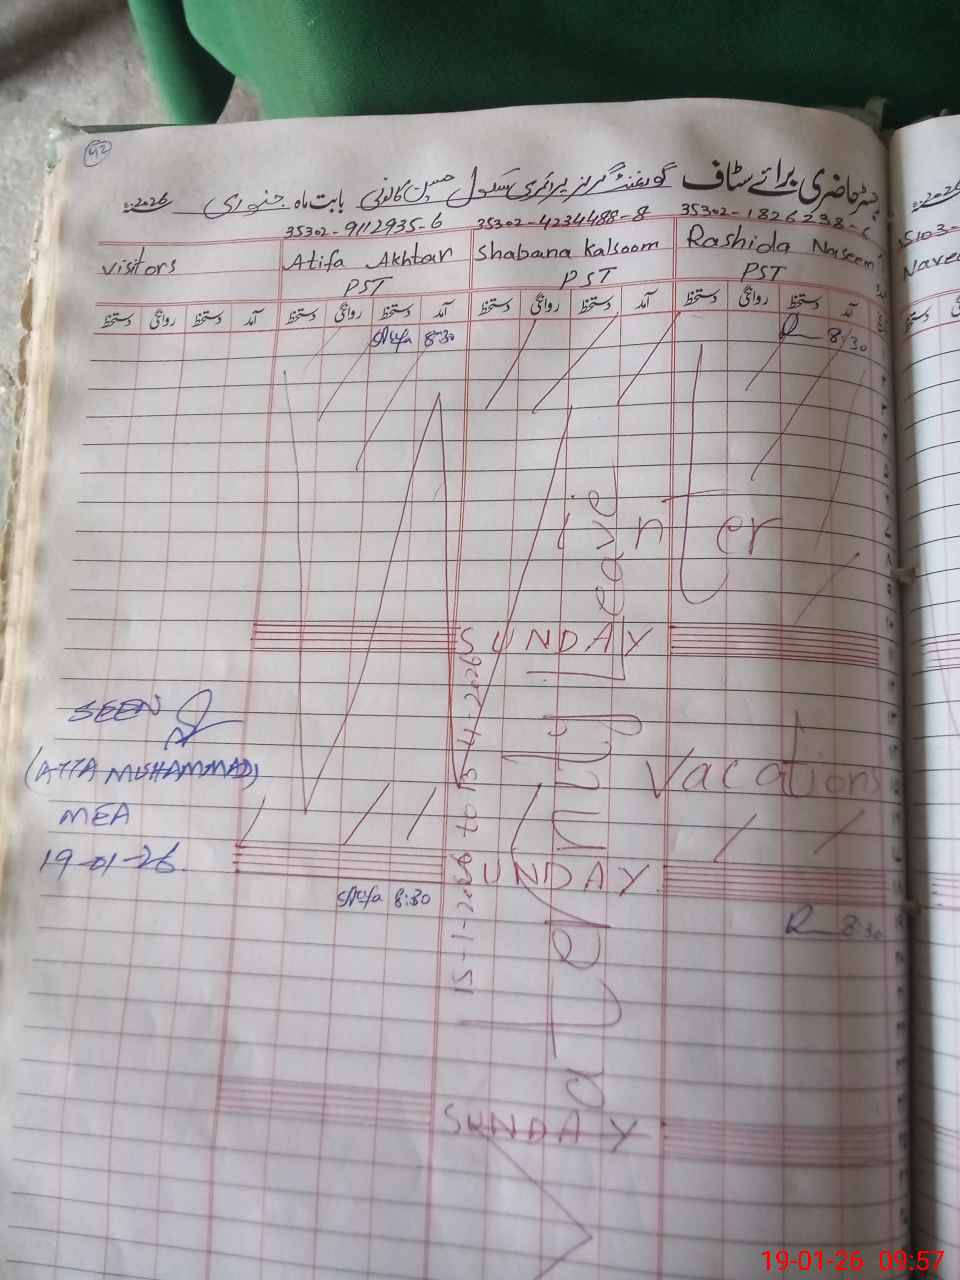 42
رجسٹر حاضری برائے سٹاف گورنمنٹ گرلز پرائمری سکول حسین کالونی بابت ماہ جنوری 2026
35302-9112935-6 35302-4234488-8 35302-1826238-
visitors Atifa Akhtar Shabana Kalsoom Rashida Naseem
PST PST PST
دستخط روانگی دستخط آمد دستخط روانگی دستخط آمد دستخط روانگی دستخط آمد دستخط روانگی دستخط آمد
Atifa 8:30 R 8:30
Winter
SUNDAY
Vacations
Maternity Leave
15-1-2026 to 15-4-2026
SEEN
(ATTA MUHAMMAD)
MEA
19-01-26.
SUNDAY
Atifa 8:30 R 8:30
SUNDAY
2026
35103-
Nave
19-01-26 09:57